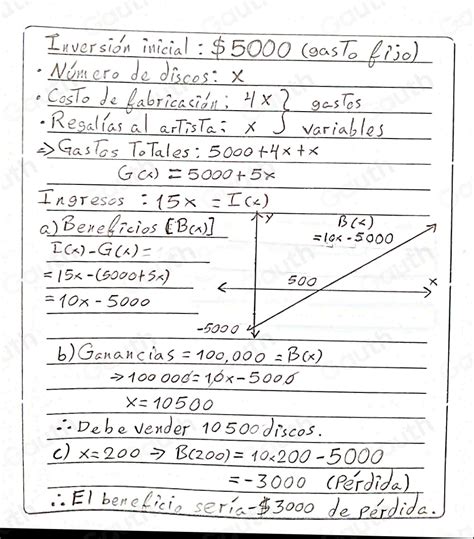 Inversión inicial: $5000 (gasto fijo)
• Número de discos: x
• Costo de fabricación: 4x } gastos
• Regalías al artista: x } variables
⇒ Gastos Totales: 5000+4x+x
G(x) = 5000+5x
Ingresos: 15x = I(x)
a) Beneficios [B(x)]
I(x)-G(x)=
=15x-(5000+5x)
=10x-5000
y
B(x)
=10x-5000
500
x
-5000
b) Ganancias = 100,000 = B(x)
→ 100000=10x-5000
x=10500
∴ Debe vender 10500 discos.
c) x=200 → B(200) = 10x200-5000
= -3000 (Pérdida)
∴ El beneficio sería -$3000 de pérdida.